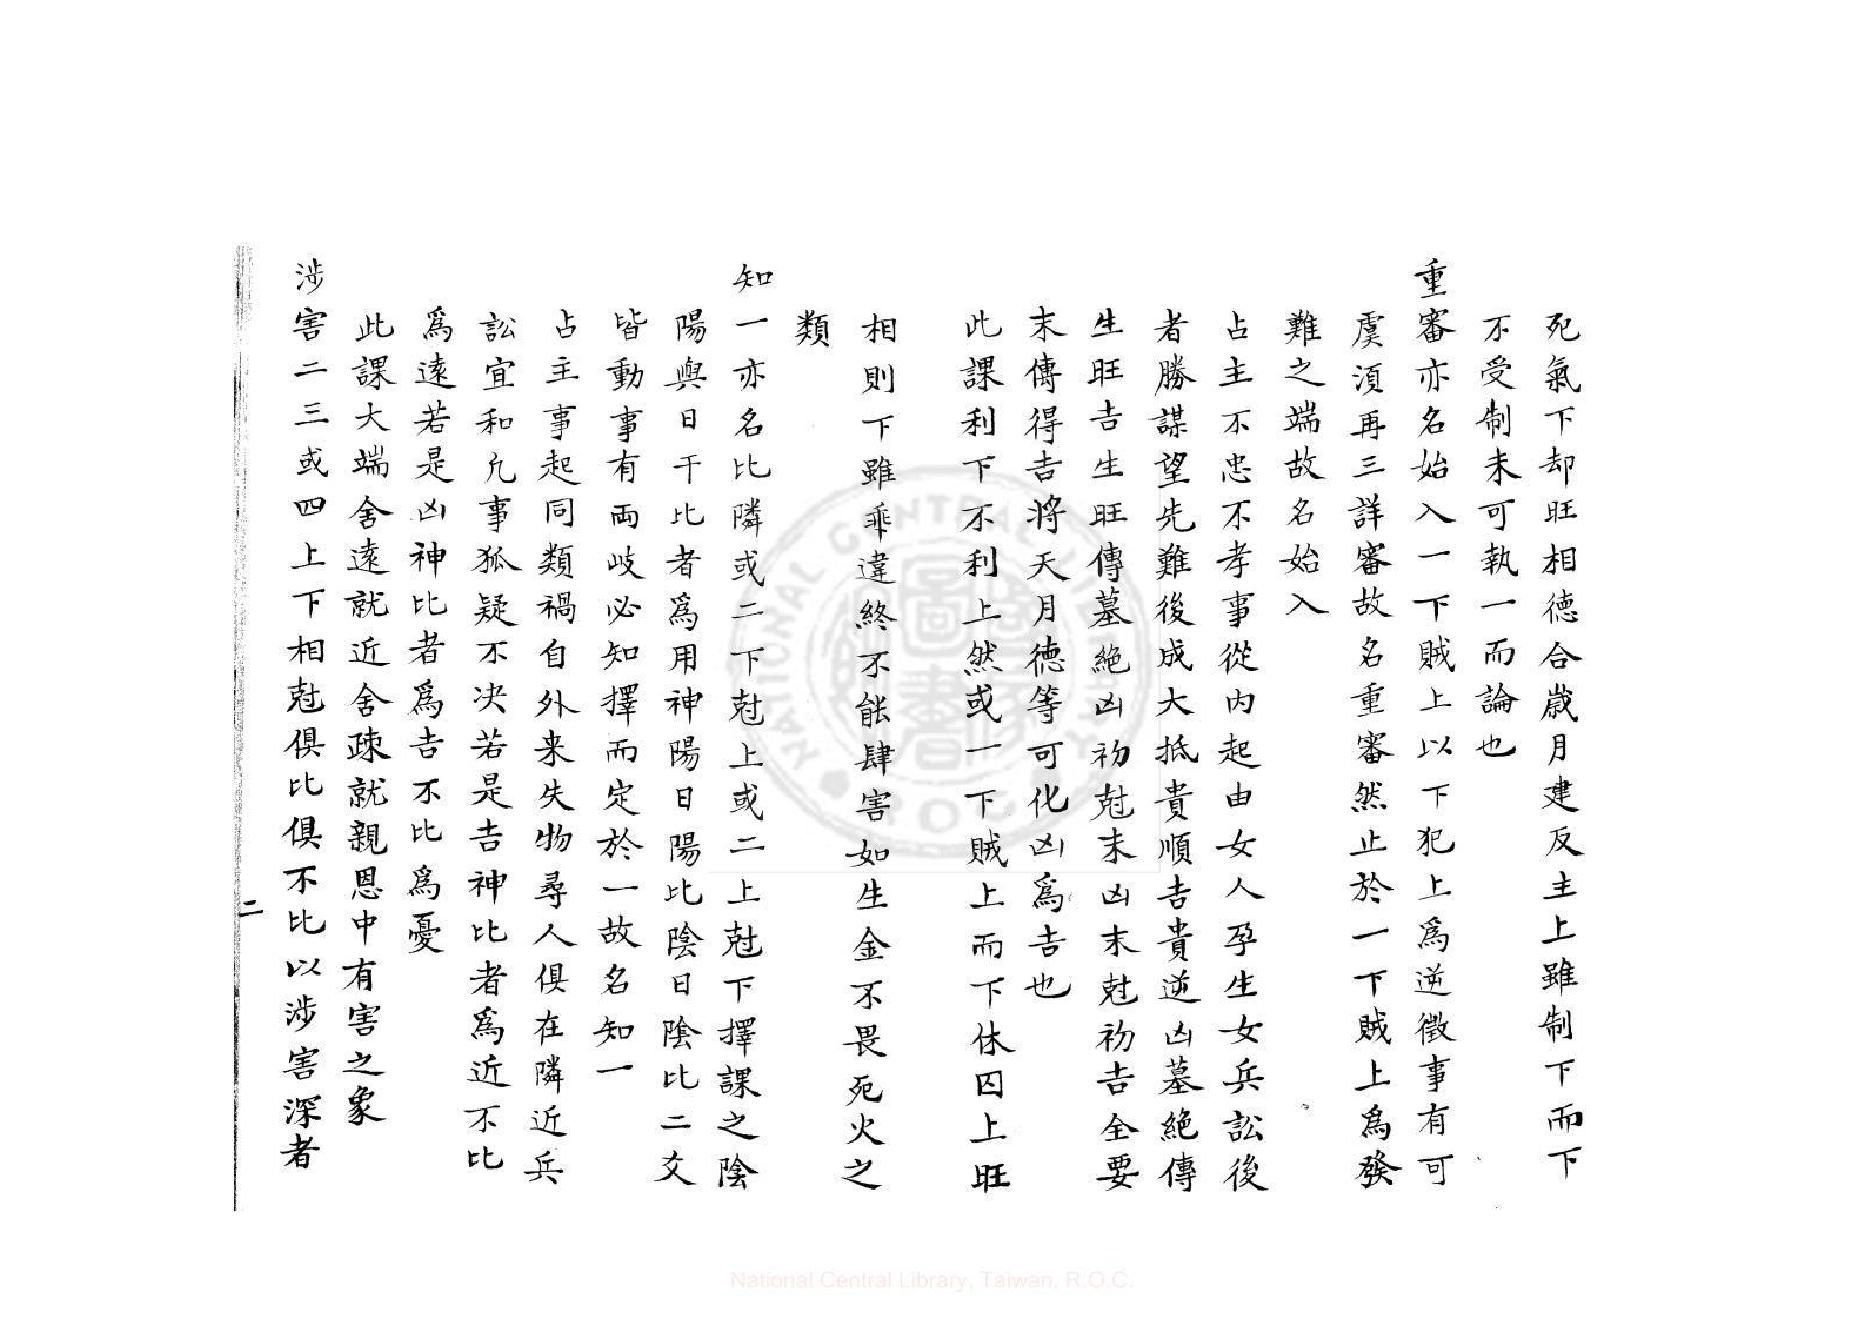 死氣下却旺相德合歲月建反主上雖制下而下
不受制未可執一而論也
重審亦名始入一下賊上以下犯上爲逆徵事有可
虞須再三詳審故名重審然止於一下賊上爲發
難之端故名始入
占主不忠不孝事從內起由女人孕生女兵訟後
者勝謀望先難後成大抵貴順吉貴逆凶墓絶傳
生旺吉生旺傳墓絶凶初尅末凶末尅初吉全要
末傳得吉將天月德等可化凶爲吉也
此課利下不利上然或一下賊上而下休囚上旺
相則下雖乖違終不能肆害如生金不畏死火之
類
知一亦名比隣或二下尅上或二上尅下擇課之陰
陽與日干比者爲用神陽日陽比陰日陰比二爻
皆動事有兩岐必知擇而定於一故名知一
占主事起同類禍自外来失物尋人俱在隣近兵
訟宜和凢事狐疑不决若是吉神比者爲近不比
爲遠若是凶神比者爲吉不比爲憂
此課大端舍遠就近舍疎就親恩中有害之象
涉害二三或四上下相尅俱比俱不比以涉害深者
二
National Central Library, Taiwan, R.O.C.